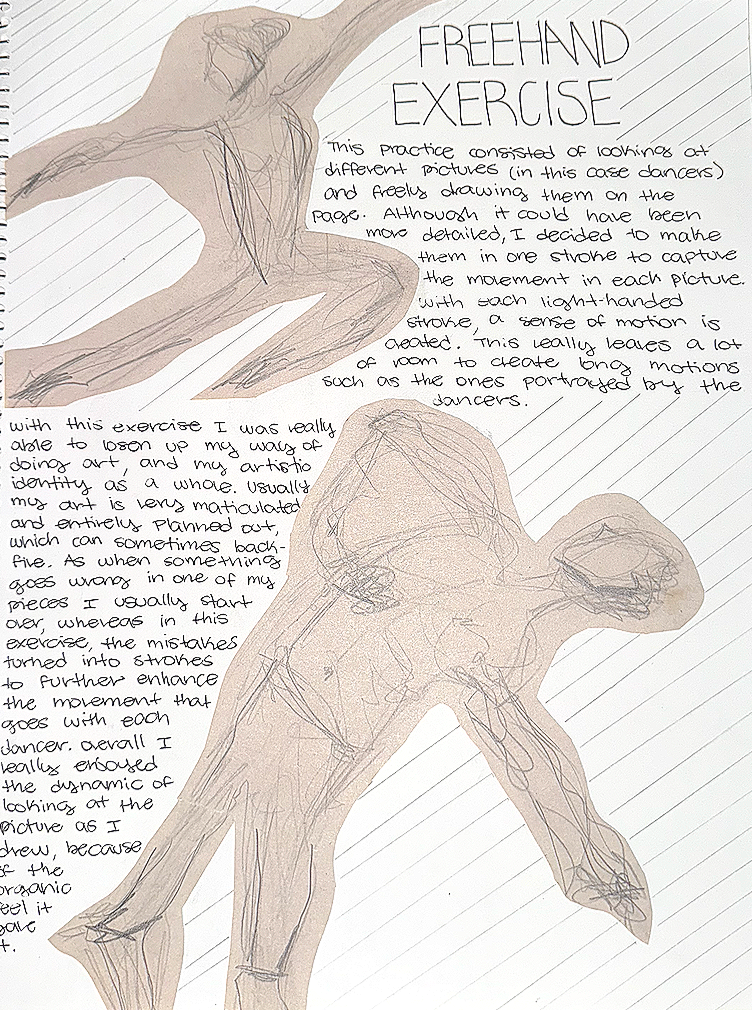 FREEHAND
EXERCISE
This practice consisted of looking at
different pictures (in this case dancers)
and freely drawing them on the
page. Although it could have been
more detailed, I decided to make
them in one stroke to capture
the movement in each picture.
with each light-handed
stroke, a sense of motion is
created. This really leaves a lot
of room to create long motions
such as the ones portrayed by the
dancers.
with this exercise I was really
able to losen up my way of
doing art, and my artistic
identity as a whole. usually
my art is very maticulated
and entirely planned out,
which can sometimes back-
fire. As when something
goes wrong in one of my
pieces I usually start
over, whereas in this
exercise, the mistakes
turned into strokes
to further enhance
the movement that
goes with each
dancer. overall I
really enjoyed
the dynamic of
looking at the
picture as I
drew, because
of the
organic
feel it
gave
it.